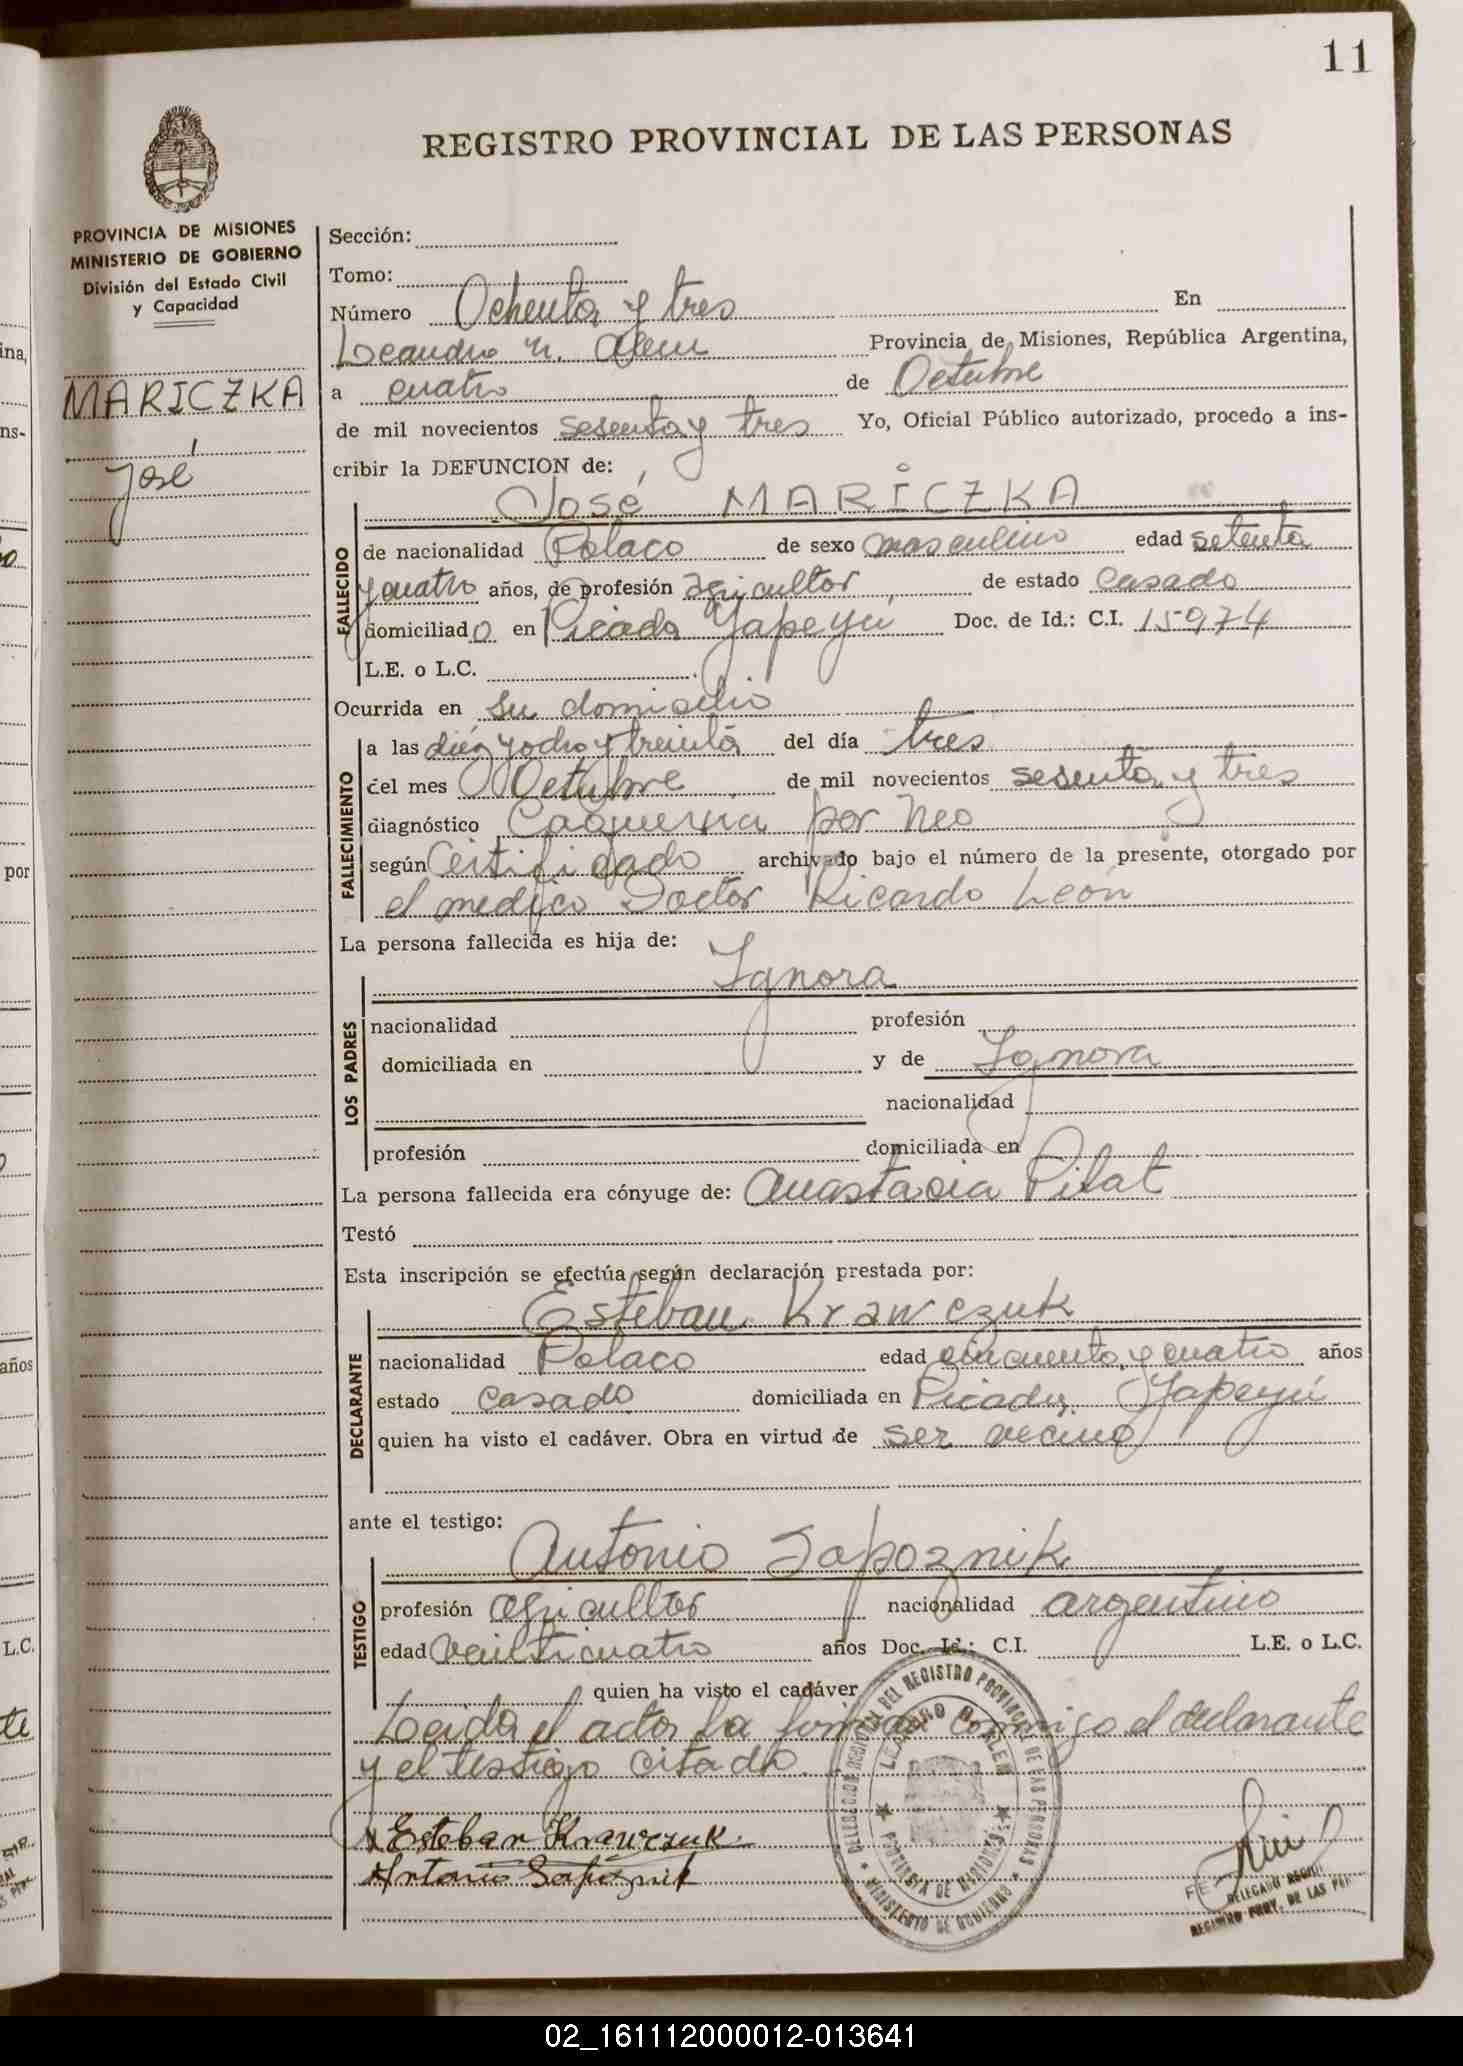 11
REGISTRO PROVINCIAL DE LAS PERSONAS
PROVINCIA DE MISIONES
MINISTERIO DE GOBIERNO
División del Estado Civil
y Capacidad
MARICZKA
José
Sección:
Tomo:
Número Ochenta y tres En
Leandro N. Alem Provincia de Misiones, República Argentina,
a cuatro de Octubre
de mil novecientos sesenta y tres Yo, Oficial Público autorizado, procedo a ins-
cribir la DEFUNCION de:
José MARICZKA
FALLECIDO
de nacionalidad Polaco de sexo masculino edad setenta
y cuatro años, de profesión agricultor de estado casado
domiciliado en Picada Yapeyú Doc. de Id.: C.I. 15974
L.E. o L.C.
Ocurrida en su domicilio
FALLECIMIENTO
a las diez y ocho y treinta del día tres
del mes Octubre de mil novecientos sesenta y tres
diagnóstico Caquexia por Neo
según Certificado archivado bajo el número de la presente, otorgado por
el medico Doctor Ricardo León
La persona fallecida es hija de:
Ygnora
LOS PADRES
nacionalidad profesión
domiciliada en y de Ygnora
nacionalidad
profesión domiciliada en
La persona fallecida era cónyuge de: Anastacia Pilat
Testó
Esta inscripción se efectúa según declaración prestada por:
Esteban Krawczuk
DECLARANTE
nacionalidad Polaco edad cincuenta y cuatro años
estado casado domiciliada en Picada Yapeyú
quien ha visto el cadáver. Obra en virtud de ser vecino
ante el testigo:
Antonio Sapoznik
TESTIGO
profesión agricultor nacionalidad argentino
edad veinticuatro años Doc. Id.: C.I. L.E. o L.C.
quien ha visto el cadáver
Leida el acta la firma conmigo el declarante
y el testigo citado.
Esteban Krawczuk
Antonio Sapoznik
LEANDRO N. ALEM
PROVINCIA DE MISIONES
MINISTERIO DE GOBIERNO
REGISTRO PROV. DE LAS
02_161112000012-013641